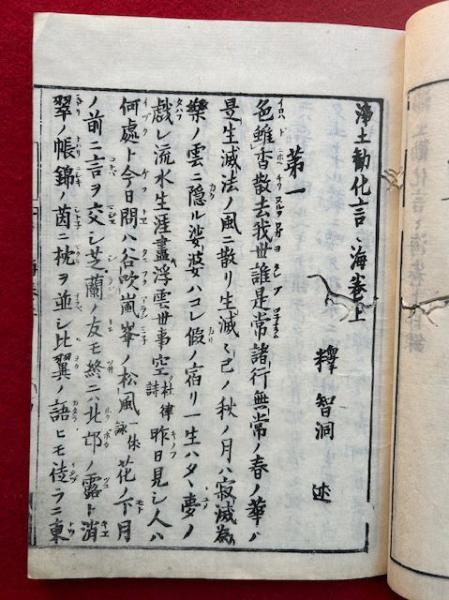 淨土勸化言〻海巻上
釋智洞述
第一
色雖香散去我世誰是常諸行無常ノ春ノ華バ
是生滅法ノ風ニ散リ生滅〻已ノ秋ノ月ハ寂滅為
樂ノ雲ニ隠ル娑婆ハコレ假ノ宿リ一生ハタヽ夢ノ
戯レ流水生涯盡浮雲世事空杜律詩昨日見シ人ハ
何處ト今日問ハ谷吹嵐峯ノ松風一休詠花ノ下月
ノ前ニ言ヲ交シ芝蘭ノ友モ終ニハ北邙ノ露ト消
翠ノ帳錦ノ茵ニ枕ヲ並シ比翼ノ語ヒモ徒ラニ東